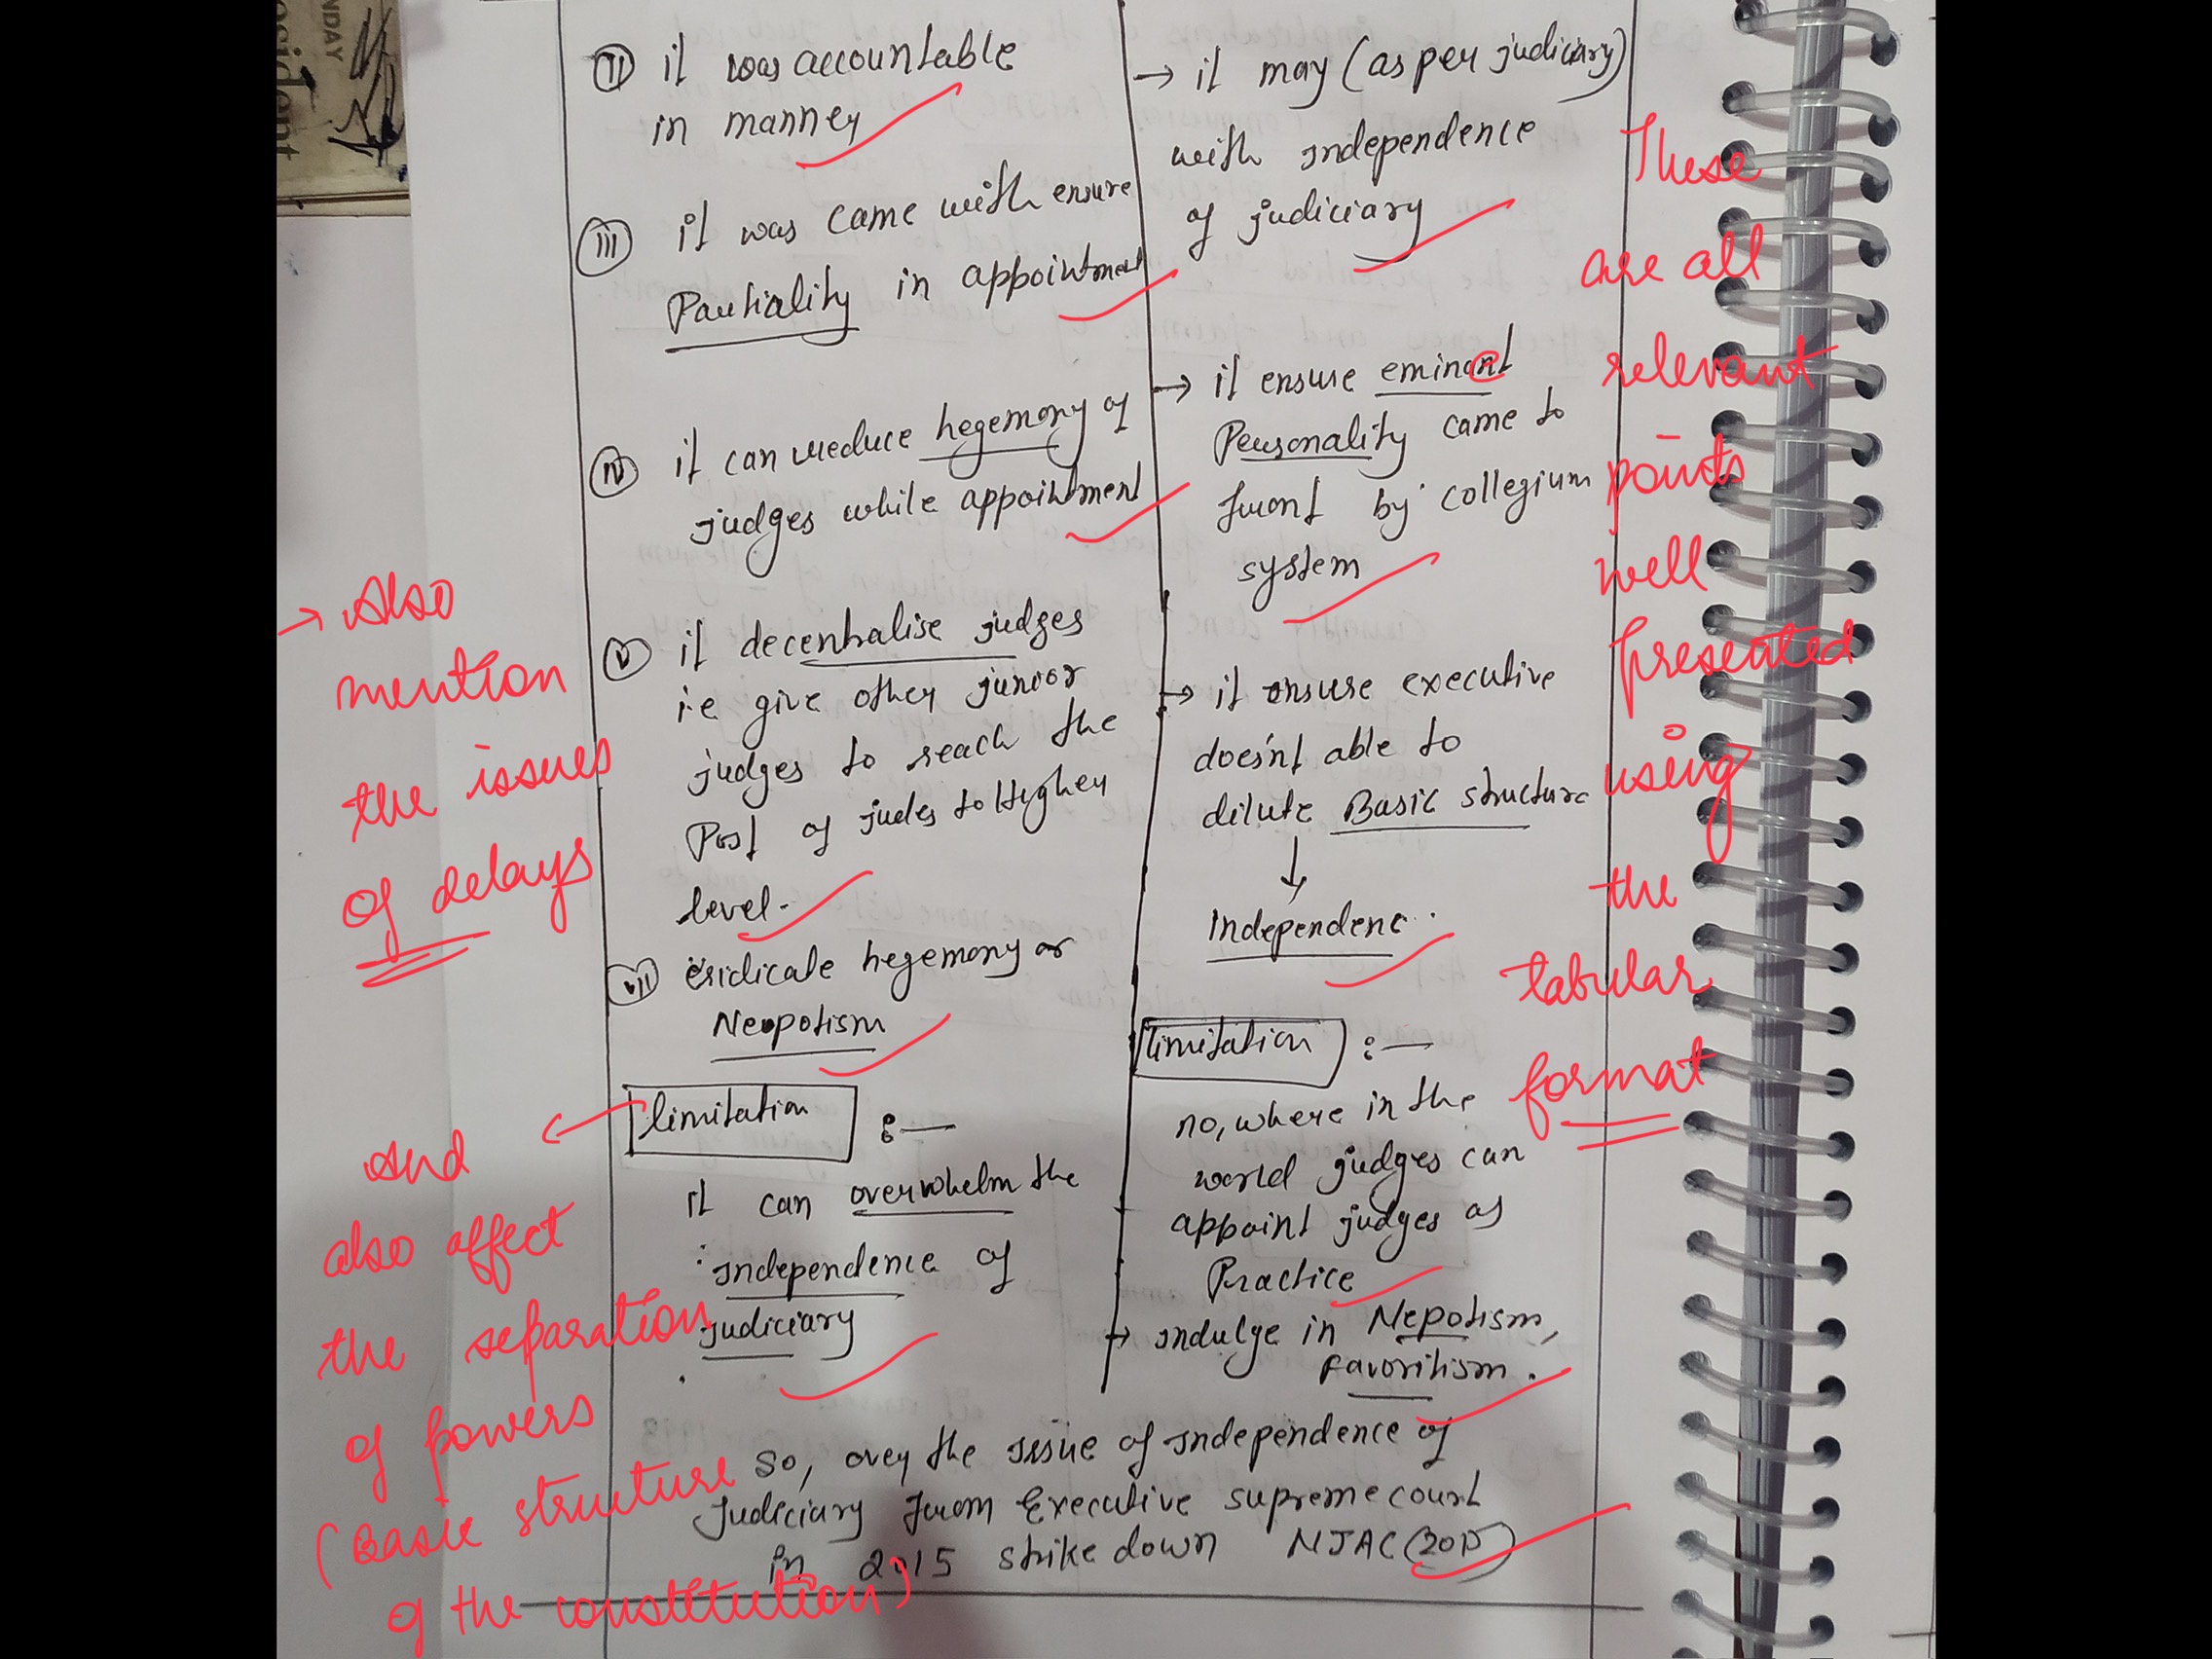 NDAY
sident
(ii) it was accountable
in manner
(iii) it was came with ensure
Partiality in appointment
(iv) it can reduce hegemony of
judges while appointment
(v) it decentralise judges
i.e give other junior
judges to reach the
Post of judes to Higher
level.
eridicate hegemony or
Neopotism
limitation :—
it can overwhelm the
independence of
judiciary
→ it may (as per judiciary)
with independence
of judiciary
→ it ensure eminent
Personality came to
front by collegium
system
→ it ensure executive
does'nt able to
dilute Basic structure
↓
Independenc.
limitation :—
no, where in the
world judges can
appoint judges as
Practice
→ indulge in Nepotism,
favoritism.
So, over the issue of independence of
Judiciary from Executive supreme court
in 2015 strike down NJAC (2015)
→ Also
mention
the issues
of delays
And
also affect
the separation
of powers
(Basic structure
of the constitution)
These
are all
relevant
points
well
presented
using
the
tabular
format